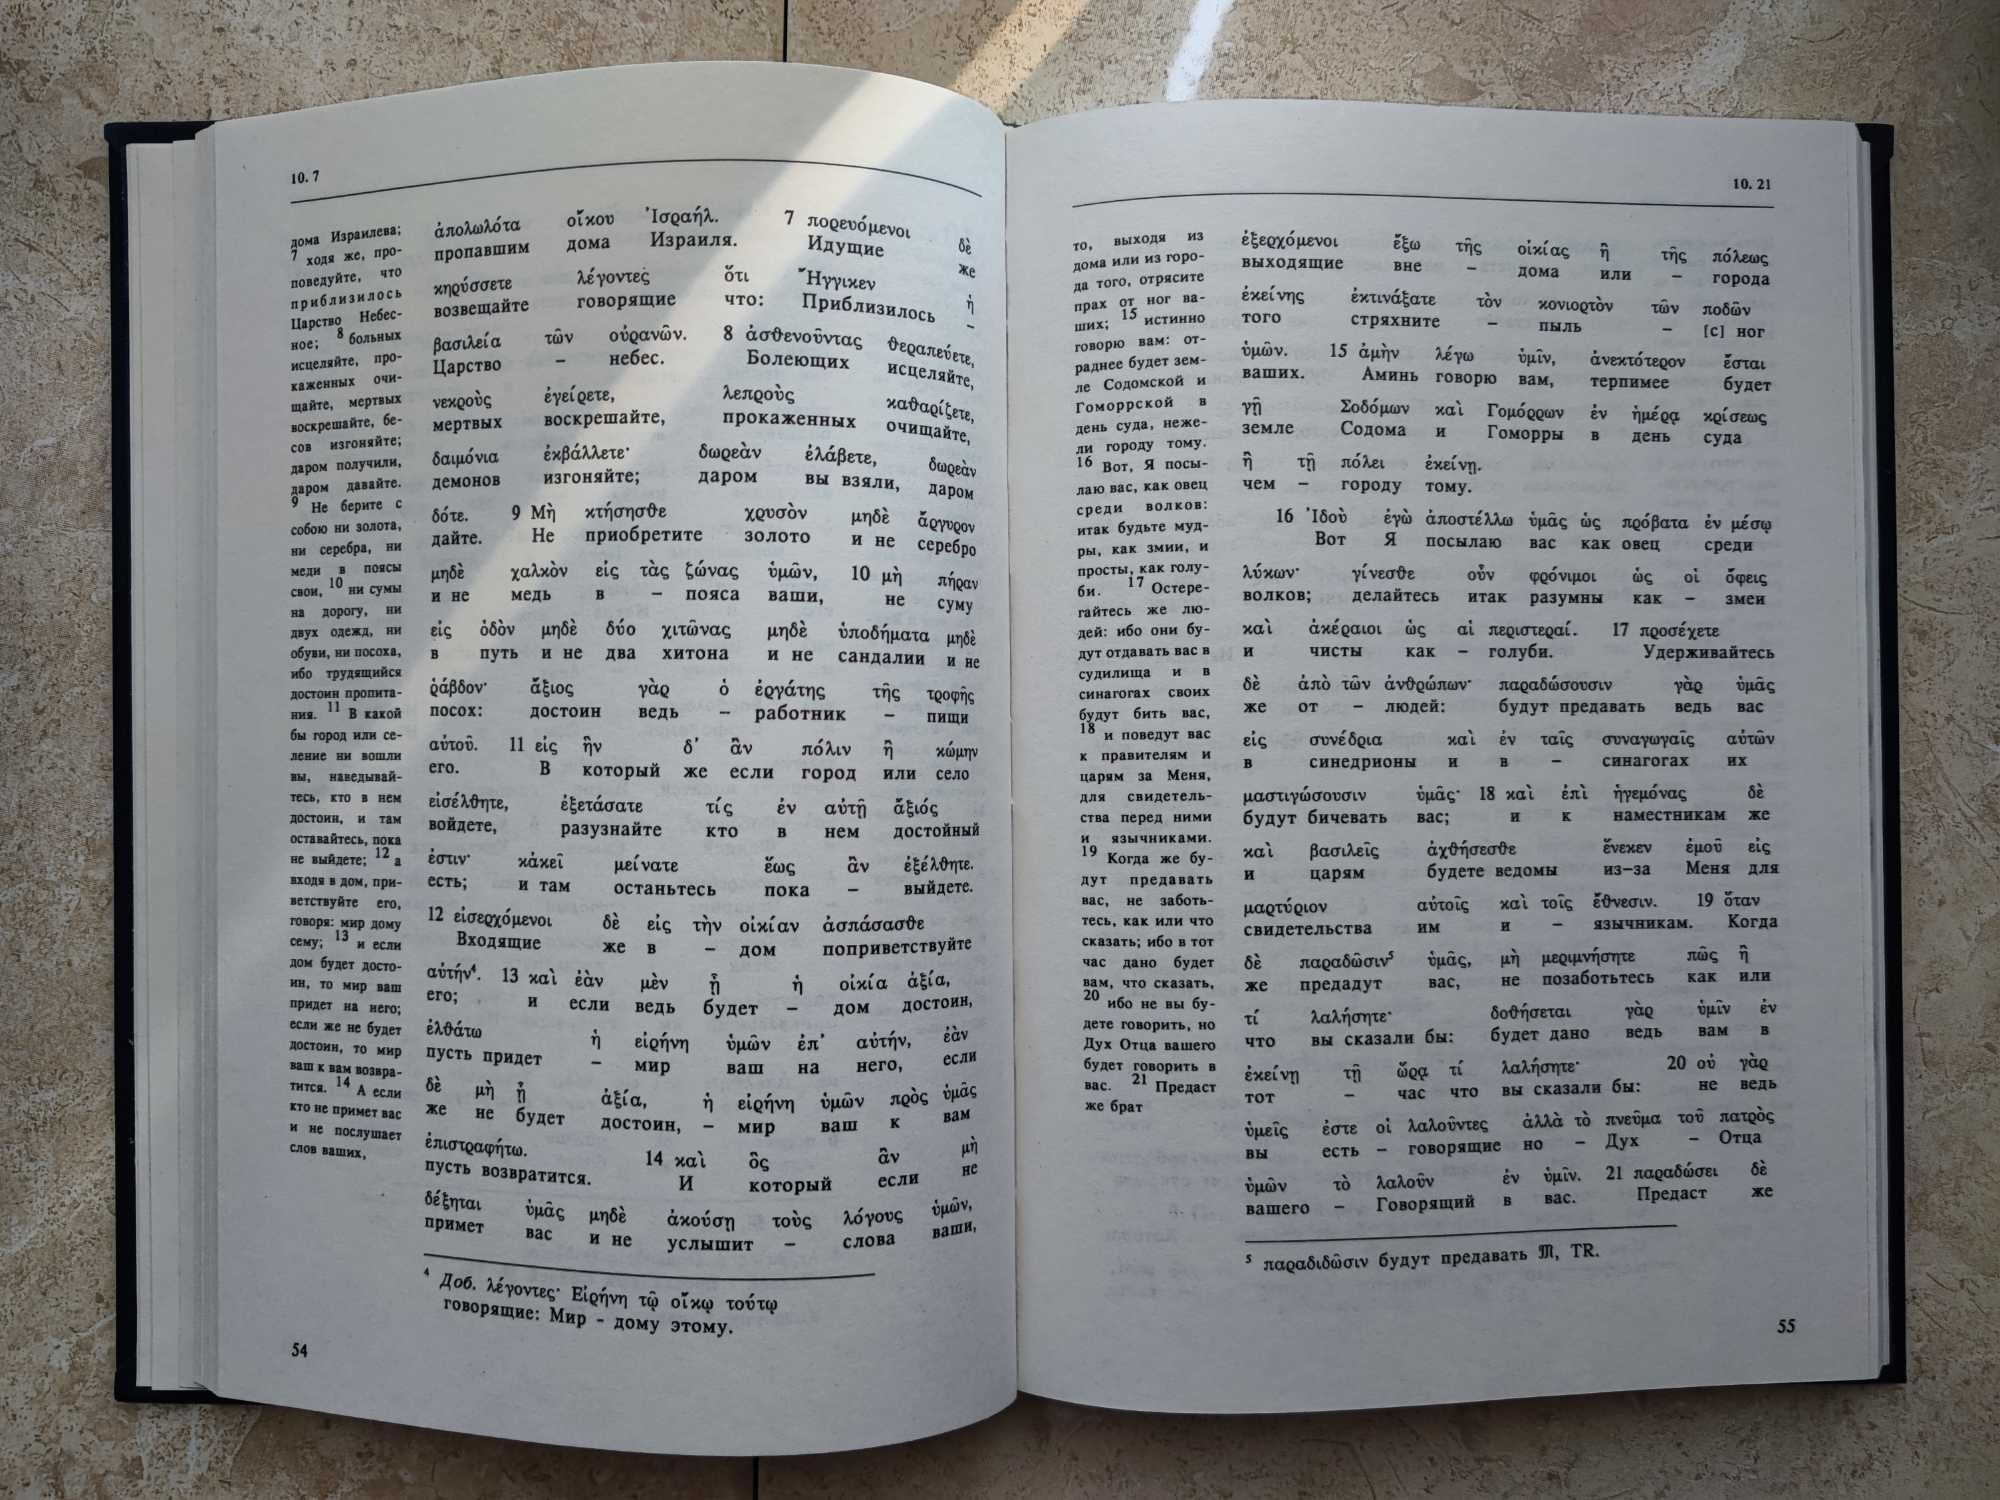 10. 7
дома Израилева;
7 ходя же, про-
поведуйте, что
приблизилось
Царство Небес-
ное; 8 больных
исцеляйте, про-
каженных очи-
щайте, мертвых
воскрешайте, бе-
сов изгоняйте;
даром получили,
даром давайте.
9 Не берите с
собою ни золота,
ни серебра, ни
меди в поясы
свои, 10 ни сумы
на дорогу, ни
двух одежд, ни
обуви, ни посоха,
ибо трудящийся
достоин пропита-
ния. 11 В какой
бы город или се-
ление ни вошли
вы, наведывай-
тесь, кто в нем
достоин, и там
оставайтесь, пока
не выйдете; 12 а
входя в дом, при-
ветствуйте его,
говоря: мир дому
сему; 13 и если
дом будет досто-
ин, то мир ваш
придет на него;
если же не будет
достоин, то мир
ваш к вам возвра-
тится. 14 А если
кто не примет вас
и не послушает
слов ваших,
ἀπολωλότα οἴκου Ἰσραήλ. 7 πορευόμενοι δὲ
пропавшим дома Израиля. Идущие же
κηρύσσετε λέγοντες ὅτι Ἤγγικεν ἡ
возвещайте говорящие что: Приблизилось –
βασιλεία τῶν οὐρανῶν. 8 ἀσθενοῦντας θεραπεύετε,
Царство – небес. Болеющих исцеляйте,
νεκροὺς ἐγείρετε, λεπροὺς καθαρίζετε,
мертвых воскрешайте, прокаженных очищайте,
δαιμόνια ἐκβάλλετε· δωρεὰν ἐλάβετε, δωρεὰν
демонов изгоняйте; даром вы взяли, даром
δότε. 9 Μὴ κτήσησθε χρυσὸν μηδὲ ἄργυρον
дайте. Не приобретите золото и не серебро
μηδὲ χαλκὸν εἰς τὰς ζώνας ὑμῶν, 10 μὴ πήραν
и не медь в – пояса ваши, не суму
εἰς ὁδὸν μηδὲ δύο χιτῶνας μηδὲ ὑποδήματα μηδὲ
в путь и не два хитона и не сандалии и не
ῥάβδον· ἄξιος γὰρ ὁ ἐργάτης τῆς τροφῆς
посох: достоин ведь – работник – пищи
αὐτοῦ. 11 εἰς ἣν δ' ἂν πόλιν ἢ κώμην
его. В который же если город или село
εἰσέλθητε, ἐξετάσατε τίς ἐν αὐτῇ ἄξιός
войдете, разузнайте кто в нем достойный
ἐστιν· κἀκεῖ μείνατε ἕως ἂν ἐξέλθητε.
есть; и там останьтесь пока – выйдете.
12 εἰσερχόμενοι δὲ εἰς τὴν οἰκίαν ἀσπάσασθε
Входящие же в – дом поприветствуйте
αὐτήν⁴. 13 καὶ ἐὰν μὲν ᾖ ἡ οἰκία ἀξία,
его; и если ведь будет – дом достоин,
ἐλθάτω ἡ εἰρήνη ὑμῶν ἐπ' αὐτήν, ἐὰν
пусть придет – мир ваш на него, если
δὲ μὴ ᾖ ἀξία, ἡ εἰρήνη ὑμῶν πρὸς ὑμᾶς
же не будет достоин, – мир ваш к вам
ἐπιστραφήτω. 14 καὶ ὃς ἂν μὴ
пусть возвратится. И который если не
δέξηται ὑμᾶς μηδὲ ἀκούσῃ τοὺς λόγους ὑμῶν,
примет вас и не услышит – слова ваши,
⁴ Доб. λέγοντες· Εἰρήνη τῷ οἴκῳ τούτῳ
говорящие: Мир - дому этому.
54
10. 21
то, выходя из
дома или из горо-
да того, отрясите
прах от ног ва-
ших; 15 истинно
говорю вам: от-
раднее будет зем-
ле Содомской и
Гоморрской в
день суда, неже-
ли городу тому.
16 Вот, Я посы-
лаю вас, как овец
среди волков:
итак будьте муд-
ры, как змии, и
просты, как голу-
би. 17 Остере-
гайтесь же лю-
дей: ибо они бу-
дут отдавать вас в
судилища и в
синагогах своих
будут бить вас,
18 и поведут вас
к правителям и
царям за Меня,
для свидетель-
ства перед ними
и язычниками.
19 Когда же бу-
дут предавать
вас, не заботь-
тесь, как или что
сказать; ибо в тот
час дано будет
вам, что сказать,
20 ибо не вы бу-
дете говорить, но
Дух Отца вашего
будет говорить в
вас. 21 Предаст
же брат
ἐξερχόμενοι ἔξω τῆς οἰκίας ἢ τῆς πόλεως
выходящие вне – дома или – города
ἐκείνης ἐκτινάξατε τὸν κονιορτὸν τῶν ποδῶν
того стряхните – пыль – [с] ног
ὑμῶν. 15 ἀμὴν λέγω ὑμῖν, ἀνεκτότερον ἔσται
ваших. Аминь говорю вам, терпимее будет
γῇ Σοδόμων καὶ Γομόρρων ἐν ἡμέρᾳ κρίσεως
земле Содома и Гоморры в день суда
ἢ τῇ πόλει ἐκείνῃ.
чем – городу тому.
16 Ἰδοὺ ἐγὼ ἀποστέλλω ὑμᾶς ὡς πρόβατα ἐν μέσῳ
Вот Я посылаю вас как овец среди
λύκων· γίνεσθε οὖν φρόνιμοι ὡς οἱ ὄφεις
волков; делайтесь итак разумны как – змеи
καὶ ἀκέραιοι ὡς αἱ περιστεραί. 17 προσέχετε
и чисты как – голуби. Удерживайтесь
δὲ ἀπὸ τῶν ἀνθρώπων· παραδώσουσιν γὰρ ὑμᾶς
же от – людей: будут предавать ведь вас
εἰς συνέδρια καὶ ἐν ταῖς συναγωγαῖς αὐτῶν
в синедрионы и в – синагогах их
μαστιγώσουσιν ὑμᾶς· 18 καὶ ἐπὶ ἡγεμόνας δὲ
будут бичевать вас; и к наместникам же
καὶ βασιλεῖς ἀχθήσεσθε ἕνεκεν ἐμοῦ εἰς
и царям будете ведомы из-за Меня для
μαρτύριον αὐτοῖς καὶ τοῖς ἔθνεσιν. 19 ὅταν
свидетельства им и – язычникам. Когда
δὲ παραδῶσιν⁵ ὑμᾶς, μὴ μεριμνήσητε πῶς ἢ
же предадут вас, не позаботьтесь как или
τί λαλήσητε· δοθήσεται γὰρ ὑμῖν ἐν
что вы сказали бы: будет дано ведь вам в
ἐκείνῃ τῇ ὥρᾳ τί λαλήσητε· 20 οὐ γὰρ
тот – час что вы сказали бы: не ведь
ὑμεῖς ἐστε οἱ λαλοῦντες ἀλλὰ τὸ πνεῦμα τοῦ πατρὸς
вы есть – говорящие но – Дух – Отца
ὑμῶν τὸ λαλοῦν ἐν ὑμῖν. 21 παραδώσει δὲ
вашего – Говорящий в вас. Предаст же
⁵ παραδιδῶσιν будут предавать 𝔐, TR.
55